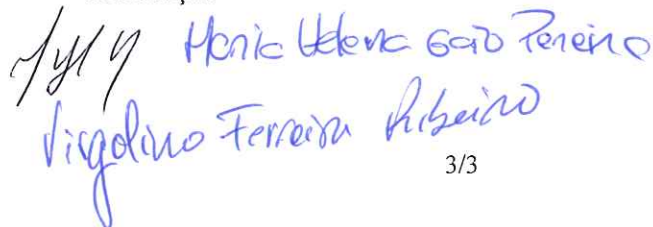 Maria Helena Gaio Pereira
Virgolino Ferreira Ribeiro
3/3